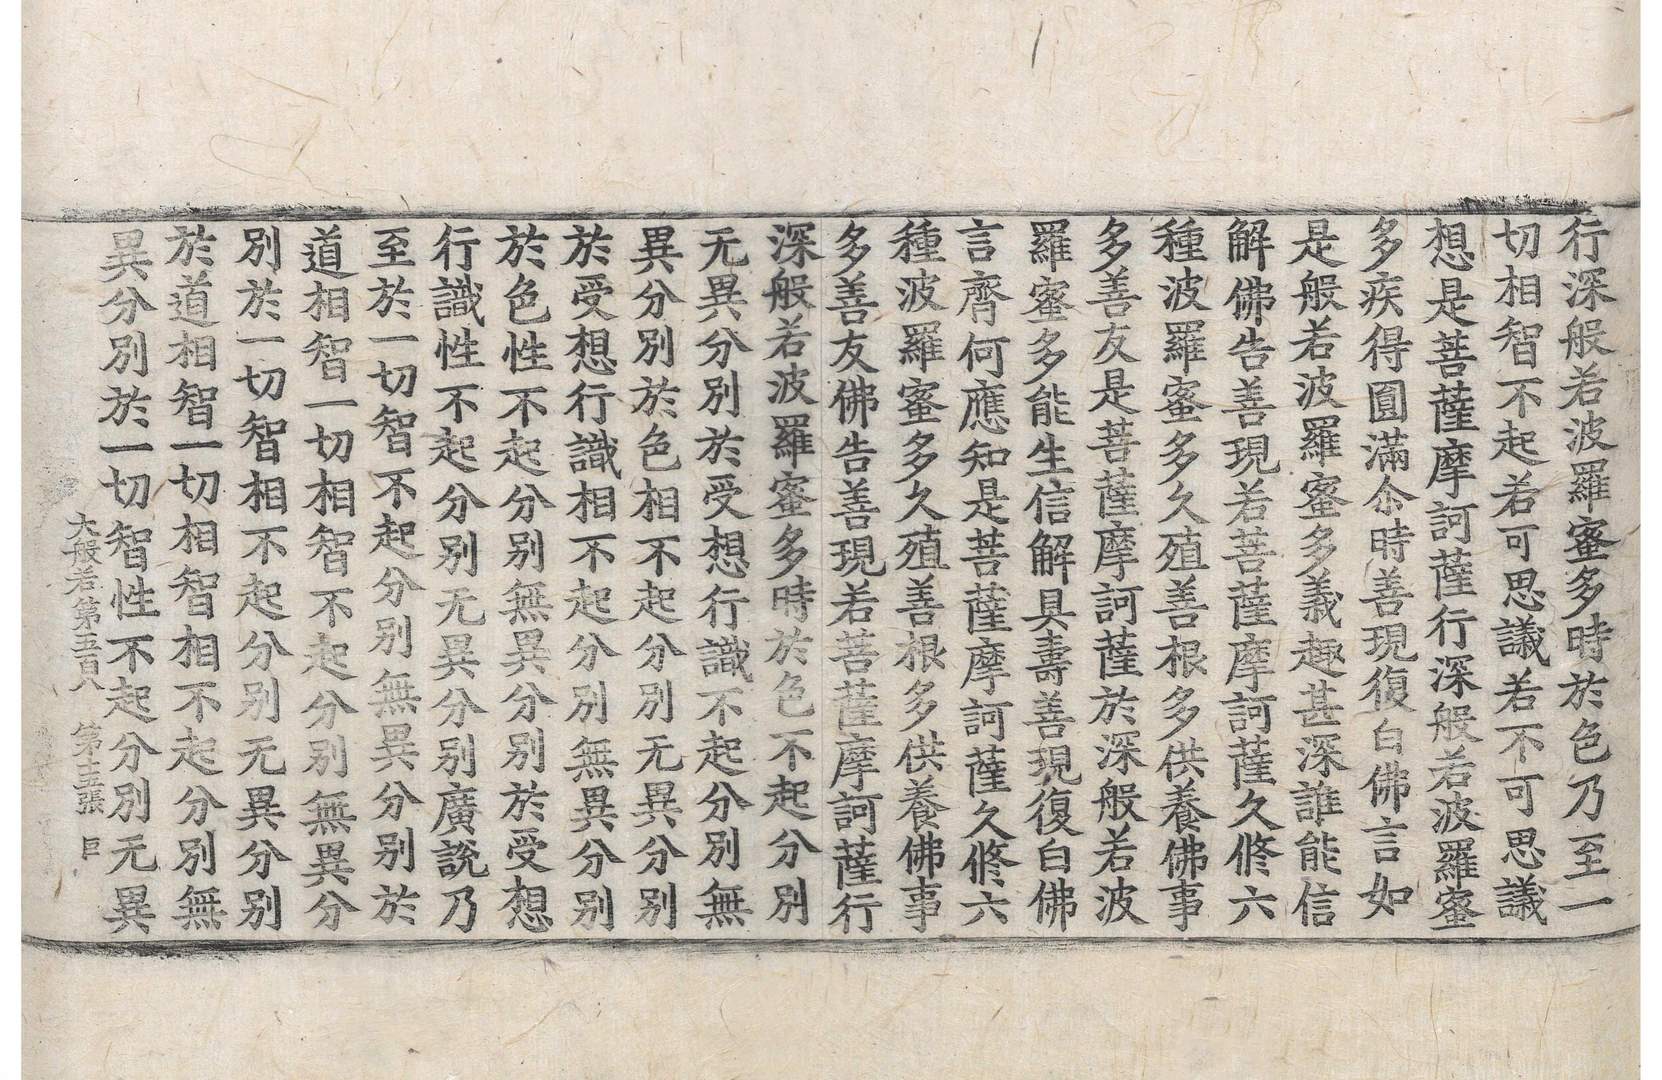 行深般若波羅蜜多時於色乃至一
切相智不起若可思議若不可思議
想是菩薩摩訶薩行深般若波羅蜜
多疾得圓滿尒時善現復白佛言如
是般若波羅蜜多義趣甚深誰能信
解佛告善現若菩薩摩訶薩久修六
種波羅蜜多久殖善根多供養佛事
多善友是菩薩摩訶薩於深般若波
羅蜜多能生信解具壽善現復白佛
言齊何應知是菩薩摩訶薩久修六
種波羅蜜多久殖善根多供養佛事
多善友佛告善現若菩薩摩訶薩行
深般若波羅蜜多時於色不起分別
无異分別於受想行識不起分別無
異分別於色相不起分別无異分別
於受想行識相不起分別無異分別
於色性不起分別無異分別於受想
行識性不起分別无異分別廣說乃
至於一切智不起分別無異分別於
道相智一切相智不起分別無異分
別於一切智相不起分別无異分別
於道相智一切相智相不起分別無
異分別於一切智性不起分別无異
大般若第五百八 第十五張 巨